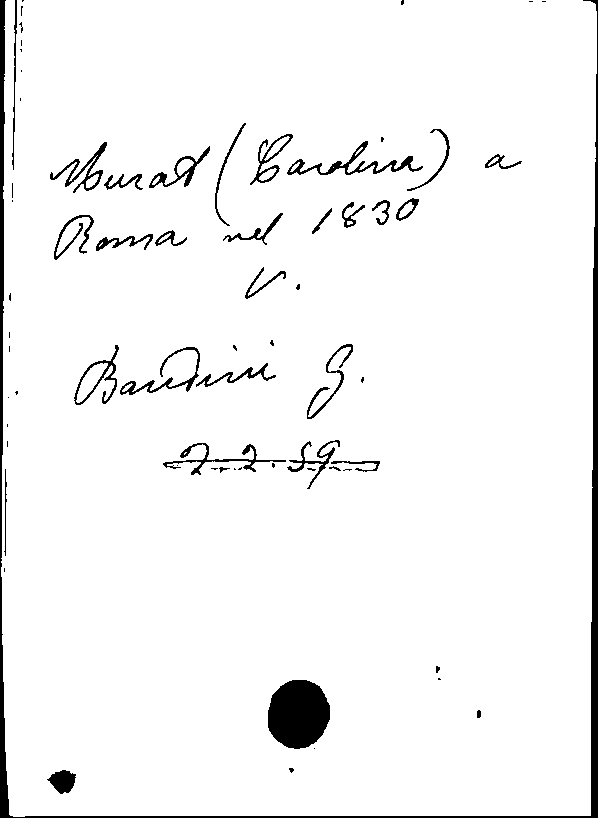 Murat (Carolina) a
Roma nel 1830
V.
Bandini G.
2.2.59